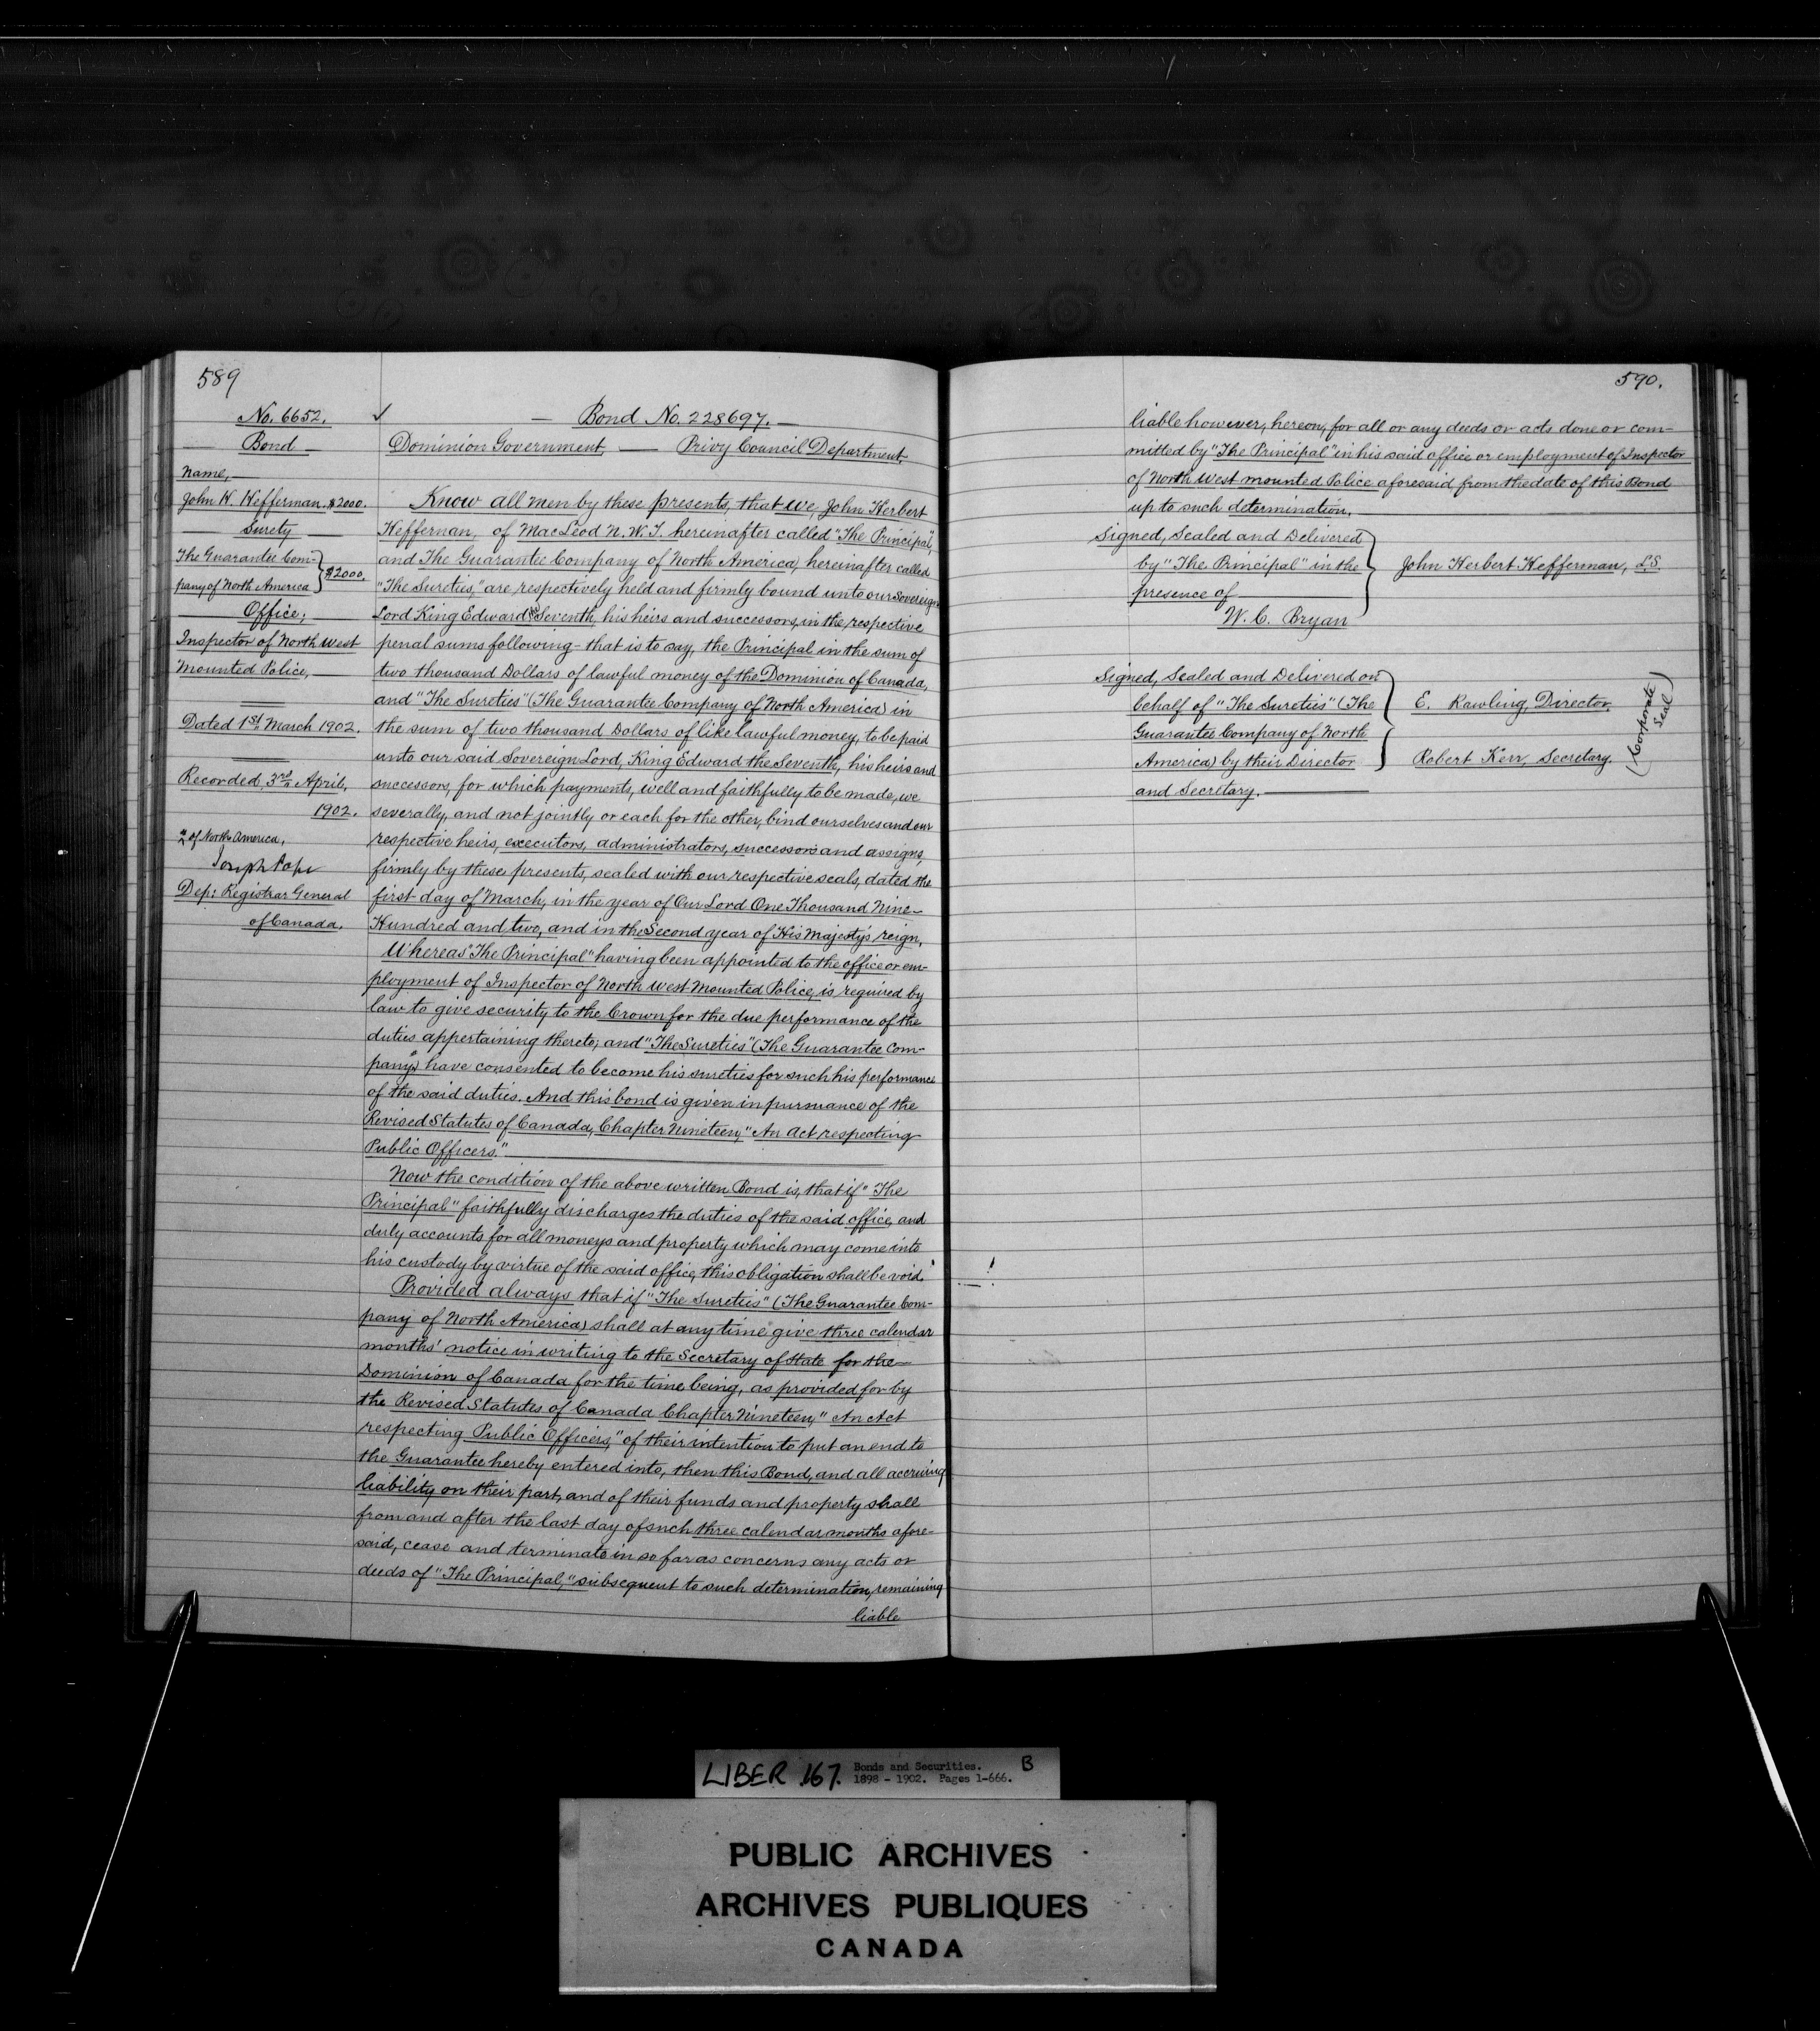 589
No. 6652.
Bond
Name,
John H. Hefferman. $2000.
Surety
The Guarantee Com-
pany of North America } $2000.
Office;
Inspector of North West
Mounted Police,
Dated 1st March 1902.
Recorded, 3rd April,
1902.
"of North America,
Joseph Pope
Dep: Registrar General
of Canada.
✓ Bond No. 228697.
Dominion Government, — Privy Council Department.
Know all men by these presents, that we John Herbert
Heffernan, of MacLeod N.W.T. hereinafter called "The Principal",
and The Guarantee Company of North America, hereinafter called
"The Sureties," are respectively held and firmly bound unto our Sovereign
Lord King Edward the Seventh, his heirs and successors, in the respective
penal sums following - that is to say, the Principal in the sum of
two thousand Dollars of lawful money of the Dominion of Canada,
and "The Sureties" (The Guarantee Company of North America) in
the sum of two thousand Dollars of like lawful money, to be paid
unto our said Sovereign Lord, King Edward the Seventh, his heirs and
successors, for which payments, well and faithfully to be made, we
severally, and not jointly or each for the other, bind ourselves and our
respective heirs, executors, administrators, successors and assigns,
firmly by these presents, sealed with our respective seals, dated the
first day of March, in the year of Our Lord One Thousand Nine
Hundred and two, and in the Second year of His Majesty's reign,
Whereas "The Principal" having been appointed to the office or em-
ployment of Inspector of North West Mounted Police, is required by
law to give security to the Crown for the due performance of the
duties appertaining thereto; and "The Sureties" (The Guarantee Com-
pany) have consented to become his sureties for such his performance
of the said duties. And this bond is given in pursuance of the
Revised Statutes of Canada, Chapter Nineteen, "An Act respecting
Public Officers."
Now the condition of the above written Bond is, that if "The
Principal" faithfully discharges the duties of the said office, and
duly accounts for all moneys and property which may come into
his custody by virtue of the said office, this obligation shall be void.
Provided always that if "The Sureties" (The Guarantee Com-
pany of North America) shall at any time give three calendar
months' notice in writing to the Secretary of State for the
Dominion of Canada for the time being, as provided for by
the Revised Statutes of Canada Chapter Nineteen, "An Act
respecting Public Officers," of their intention to put an end to
the Guarantee hereby entered into, then this Bond, and all accruing
liability on their part, and of their funds and property shall
from and after the last day of such three calendar months afore-
said, cease and terminate in so far as concerns any acts or
deeds of "The Principal," subsequent to such determination, remaining
liable
590.
liable however, hereon, for all or any deeds or acts done or com-
mitted by "The Principal" in his said office or employment of Inspector
of North West Mounted Police aforesaid from the date of this Bond
up to such determination.
Signed, Sealed and Delivered
by "The Principal" in the } John Herbert Hefferman, L.S.
presence of
W. C. Bryan
Signed, Sealed and Delivered on
behalf of "The Sureties" (The } E. Rawling, Director,
Guarantee Company of North
America) by their Director } Robert Kerr, Secretary.
and Secretary.
(Corporate
Seal)
LIBER 167. Bonds and Securities. B
1898 - 1902. Pages 1-666.
PUBLIC ARCHIVES
ARCHIVES PUBLIQUES
CANADA